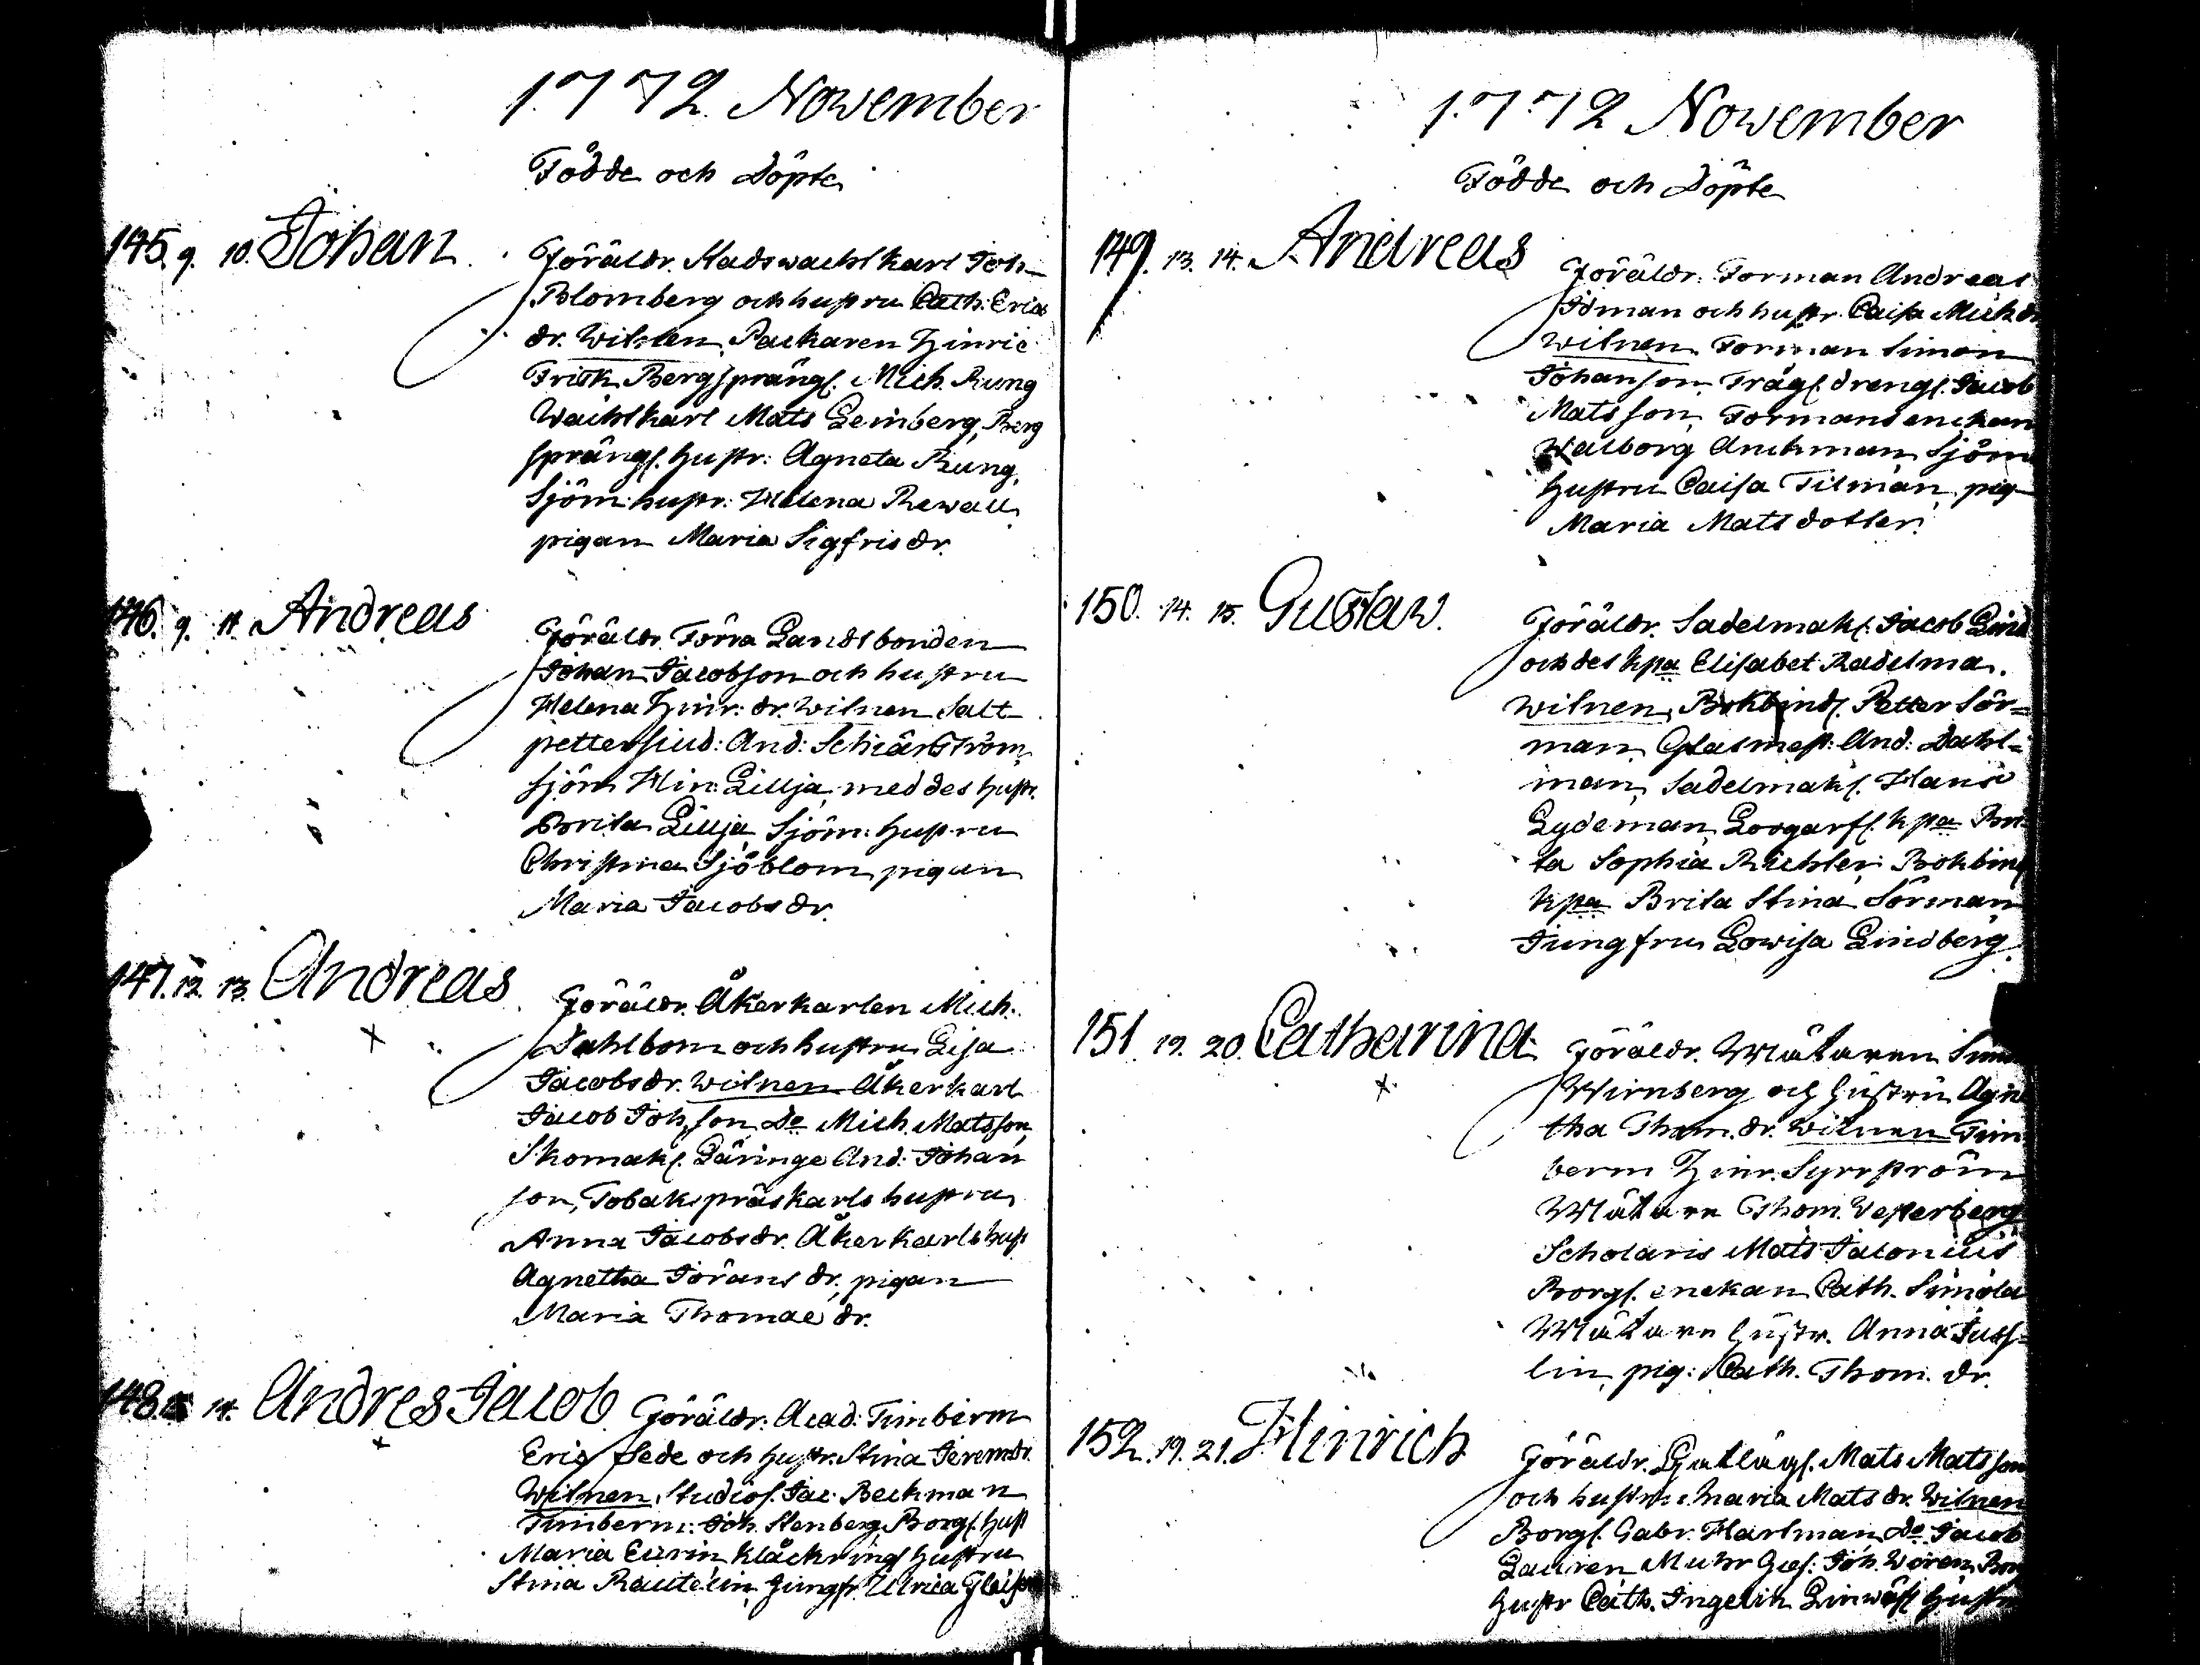 1772. November
Födde och Döpte
145. 9. 10. Johan. Föräldr. Stadswachtkarl Joh
Blomberg och hustru Cath: Erics
dr. Witnen, Packaren Hinric
Frisk Bergsprängs. Mich. Rung
Wachtkarl Mats Leinberg, Berg
sprängs. hustr: Agneta Rung,
Sjöm: hustr: Helena Rewall
pigan Maria Sigfrisdr.
146. 9. 11. Andreas Föräldr. Förra Landsbonden
Johan Jacobson och hustru
Helena Hinr: dr. Witnen Salt
pettersiud: And: Schiärström,
Sjöm Hin: Lillja, med des hustr.
Brita Lillja, Sjöm: hustru
Christina Sjöblom, pigan
Maria Jacobsdr.
147. 12. 13. Andreas Föräldr. Åkerkarlen Mich.
Dahlbom och hustru Lisa
Jacobsdr. Witnen Åkerkarl
Jacob Joh,son, Do Mich. Matsson,
Skomaks. Läringe And: Johan
son, Tobakspräskarls hustru
Anna Jacobsdr. Åkerkarls hust
Agnetha Jörans dr, pigan
Maria Thomae dr.
148. 14. Andres Jacob Föräldr: Acad: Timberm
Eric Sede och hustr. Stina Jeremdr.
Witnen, Studios. Jac: Beckman
Timberm: Joh. Stenberg, Borgs. hust
Maria Eurin, Kläckrings hustru
Stina Rautelin, Jungfr. Ulrica
1772 November
Födde och Döpte
149. 13. 14. Andreas Föräldr: Forman Andreas
Idman och hustr. Caisa Mich dr
Witnen Forman Simon
Johanson, Trägs. drengs. Jacob
Matsson, Formansenckan
Walborg Anckman, Sjöm
hustru Caisa Tilman, pig
Maria Matsdotter.
150. 14. 15. Gustaw. Föräldr. Sadelmaks. Jacob Lind
och des k̃pa Elisabet Radelma.
Witnen, Bokbinds. Petter Sör=
man, Glasmest: And: Dahl=
man, Sadelmaks. Hans
Lydeman, Loogarfs. kpa Bri
ta Sophia Richter, Bokbind
kpa Brita Stina Sörman
Jungfru Lowisa Lindberg.
151. 19. 20. Catharina Föräldr. Mätaren Sim
Wirnberg och hustru Agne
tha Thom. dr. Witnen Tim
berm Hinr. Syrström
Mätare Thom. Vesterberg
Scholaris Mats Jaconius
Borgs. enckan Cath. Simola
Mätare hustr. Anna Juss=
lin, pig: Cath. Thom. dr.
152. 19. 21. Hinrich Föräldr. Mats Matsson
och hustru Maria Mats dr. Witnen
Borgs. Gabr. Hartman, Do Jacob
Lauren Muhr Ges: Joh. Woren, Bor
hustr Cath. Ingelin, hustru